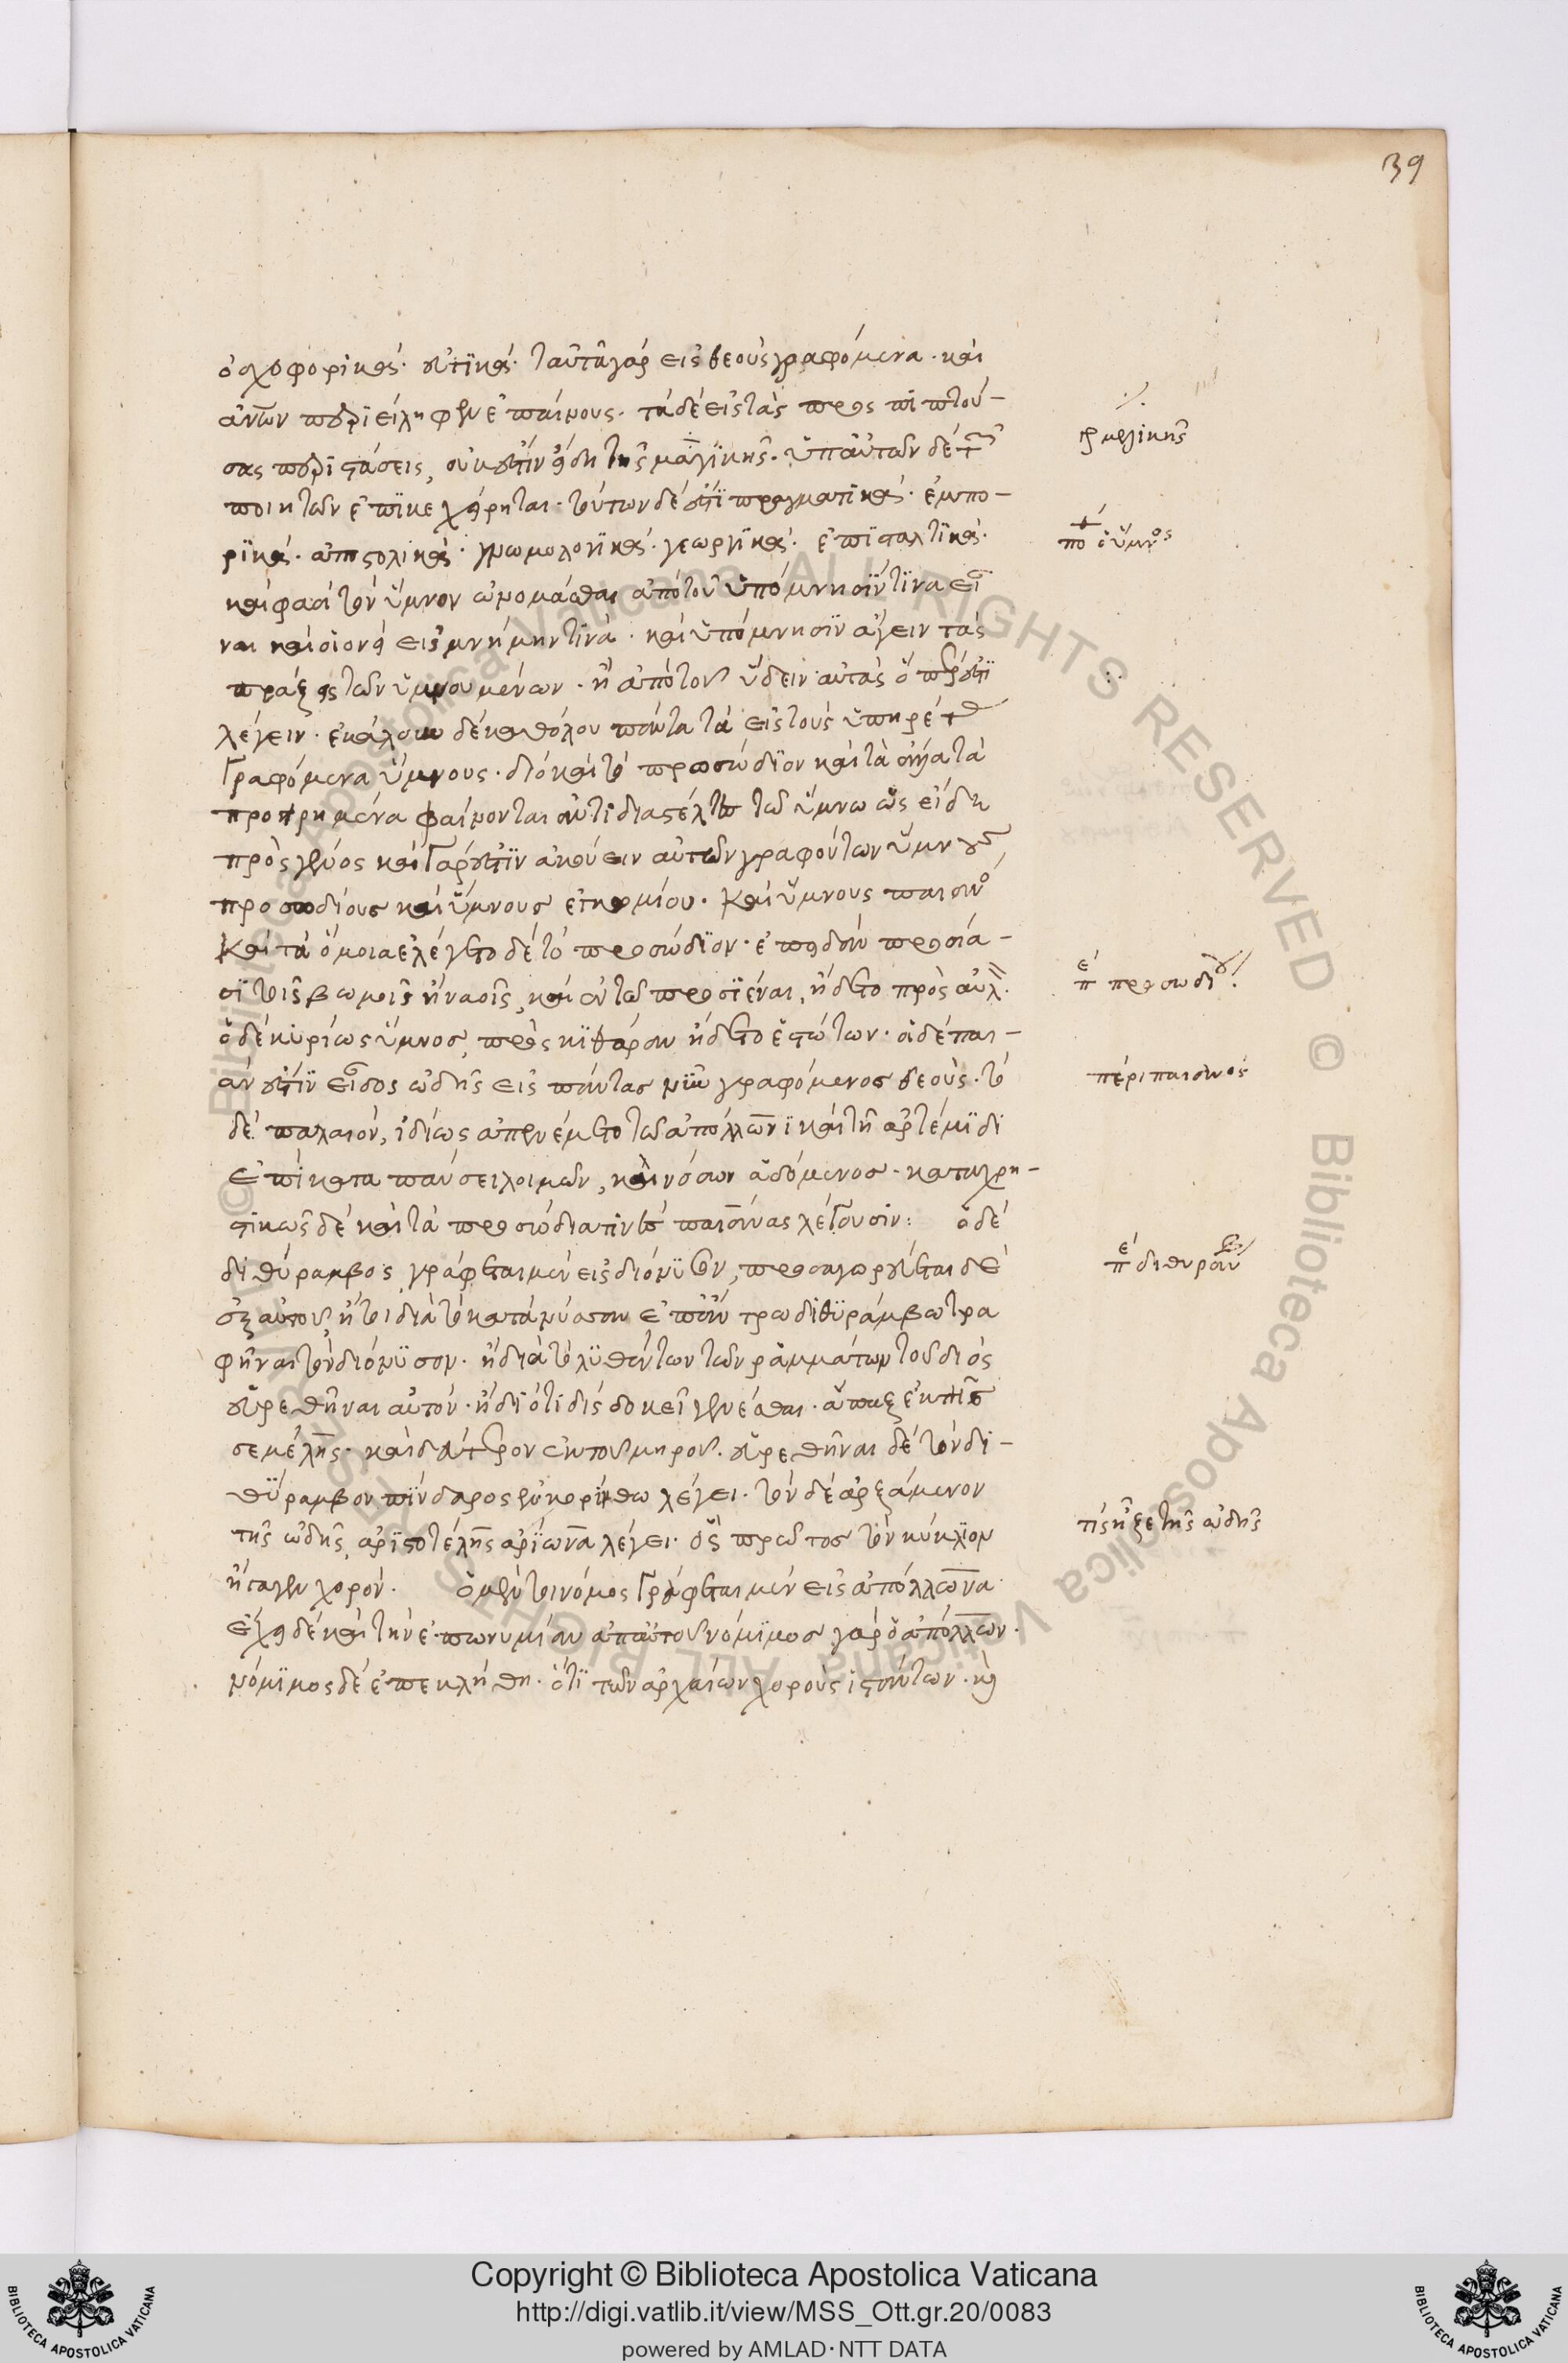 39
ὀσχοφορικά· εὐκτικά· ταῦτα γάρ εἰς θεοὺς γραφόμενα· καὶ
ἀν̅ων περιείληφεν ἐπαίνους· τὰ δὲ εἰς τὰς προσπιπτού-
σας περιστάσεις, οὐκ ἔστιν εἴδη τῆς μαγικῆς· ὑπ' αὐτῶν δὲ τ
ποιητῶν ἐπικεχείρηται· τούτων δέ ἐστι πραγματικά· ἐμπο-
ρικά· ἀποστολικά· γνωμολογικά· γεωργικά· ἐπισταλτικά·
καὶ φασὶ τὸν ὕμνον ὠνομάσθαι ἀπὸ τοῦ ὑπόμνησίν τινα εἶ
ναι καὶ οἱονεὶ εἰς μνήμην τινὰ· καὶ ὑπόμνησιν ἄγειν τὰς
πράξεις τῶν ὑμνουμένων· ἢ ἀπὸ τοῦ ὕδειν αὐτὰς ὅπερ ἐστὶ
λέγειν· ἐκάλουν δὲ καθόλου πάντα τὰ εἰς τοὺς ὑπηρέτ
γραφόμενα ὕμνους· διὸ καὶ τὸ προσώδιον καὶ τὰ ἄλλα τὰ
προειρημένα φαίνονται ἀντιδιαστέλλοντες τῷ ὕμνῳ ὡς εἴδη
πρὸς γένος καὶ γάρ ἐστιν ἀκούειν αὐτῶν γραφόντων ὕμνους
προσοδίους καὶ ὕμνους ἐγκωμίου· καὶ ὕμνους παιᾶνο
καὶ τὰ ὅμοια ἐλέγετο δὲ τὸ προσώδιον· ἐπειδὰν προσία-
σι τοῖς βωμοῖς ἢ ναοῖς, καὶ ἐν τῷ προσιέναι, ᾔδετο πρὸς αὐλ
ὁ δὲ κυρίως ὕμνος, πρὸς κιθάραν ᾔδετο ἑστώτων· ὁ δὲ παι-
άν ἐστιν εἶδος ᾠδῆς εἰς πάντας νῦν γραφόμενος θεούς· τὸ
δὲ παλαιόν, ἰδίως ἀπενέμετο τῷ ἀπόλλωνι καὶ τῇ ἀρτέμιδι
ἐπὶ καταπαύσει λοιμῶν, καὶ νόσων ᾀδόμενος· καταχρη-
στικῶς δὲ καὶ τὰ προσώδια τινὲς παιᾶνας λέγουσιν: ὁ δὲ
διθύραμβος γράφεται μὲν εἰς διόνυσον, προσαγορεύεται δὲ
ἐξ αὐτοῦ, ἤτοι διὰ τὸ κατὰ νύσαν ἐπ' ἄντρω διθυράμβω τρα
φῆναι τὸν διόνυσον· ἢ διὰ τὸ λυθέντων τῶν ραμμάτων τοῦ διὸς
εὑρεθῆναι αὐτόν· ἢ διότι δὶς δοκεῖ γενέσθαι· ἅπαξ ἐκ τῆς
σεμέλης· καὶ δεύτερον ἐκ τοῦ μηροῦ. εὑρεθῆναι δὲ τὸν δι-
θύραμβον πίνδαρος ἐν κορίνθω λέγει· τὸν δὲ ἀρξάμενον
τῆς ᾠδῆς, ἀριστοτέλης ἀρίωνα λέγει· ὃς πρῶτος τὸν κύκλιον
ἤγαγεν χορόν. ὁ μέντοι νόμος γράφεται μὲν εἰς ἀπόλλωνα·
ἔχει δὲ καὶ τὴν ἐπωνυμίαν ἀπ' αὐτοῦ νόμιμος γὰρ ὁ ἀπόλλων·
νόμιμος δὲ ἐπεκλήθη· ὅτι τῶν ἀρχαίων χοροὺς ἱστάντων· καὶ
μελικῆς
πο ὁ ὕμνος
π προσωδι
περὶ παιάνος
π διθυραμ
τίς ἦρξε τῆς ᾠδῆς
© Biblioteca Apostolica Vaticana ALL RIGHTS RESERVED © Biblioteca Apostolica Vaticana ALL RIGHTS RESERVED
Copyright © Biblioteca Apostolica Vaticana
http://digi.vatlib.it/view/MSS_Ott.gr.20/0083
powered by AMLAD·NTT DATA
BIBLIOTECA APOSTOLICA VATICANA
BIBLIOTECA APOSTOLICA VATICANA